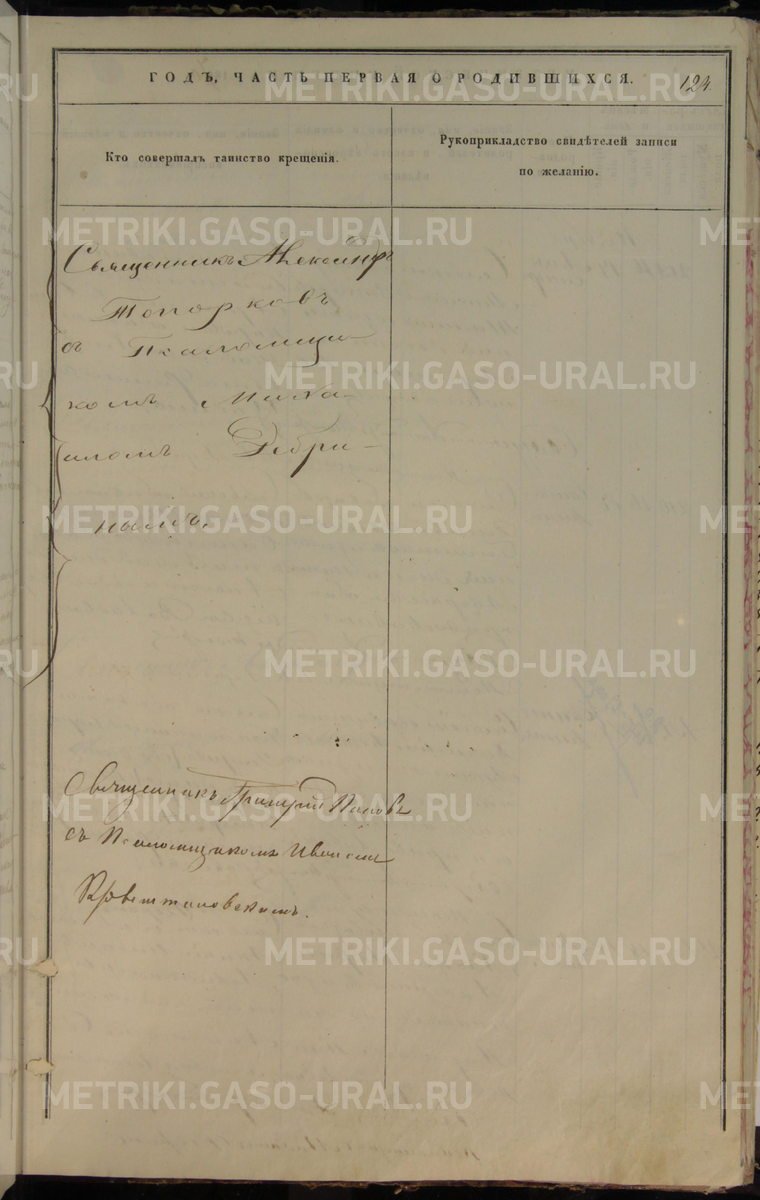 ГОДЪ, ЧАСТЬ ПЕРВАЯ О РОДИВШИХСЯ.
124.
Кто совершалъ таинство крещенія.
Рукоприкладство свидѣтелей записи
по желанію.
Священникъ Александръ
Топорковъ
съ Псаломщи-
комъ Миха-
иломъ Дебри-
нымъ.
Священникъ Григорій Поповъ
съ Псаломщикомъ Иваномъ
METRIKI.GASO-URAL.RU